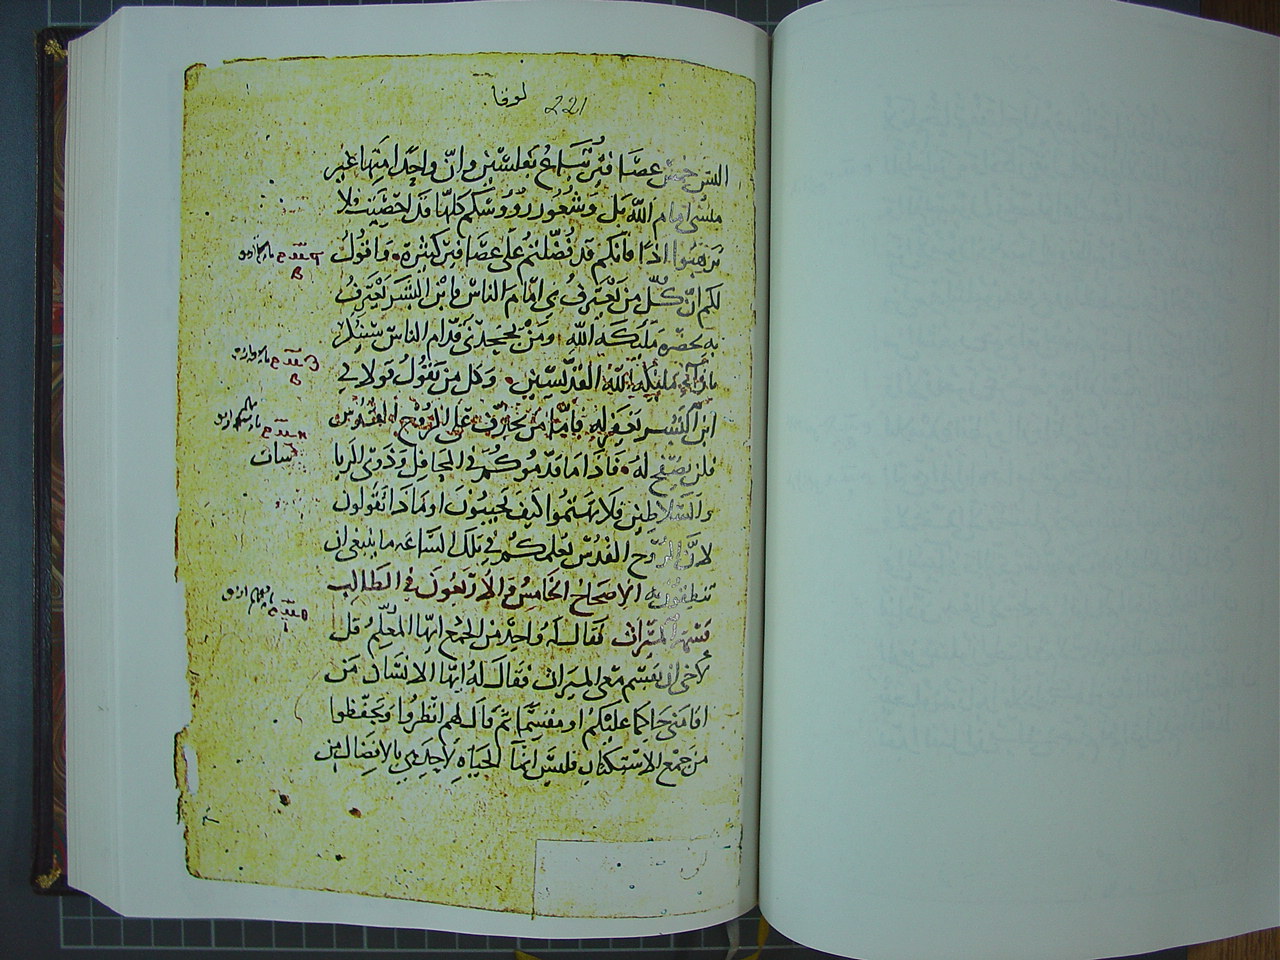 لوقا 221
اليس خمس عصافير تباع بفلسين وان واحدا منها غير
منسى امام الله بل وشعور رووسكم كلها قد احصيت فلا
ترهبوا اذا فانكم قد فضلتم على عصافير كثيرة. واقول
لكم ان كل من يعترف بي امام الناس فابن البشر يعترف
به بحضرة مليكة الله ومن يجحدني قدام الناس سينكر
الله القديسين. وكل من يقول قولا في
ابن البشر يغفر له فاما من يفترى على الروح القدس
فلن يصفح له. فاذا ما قدموكم في المحافل وذوى الربا
والسلاطين فلا تهتموا كيف تجيبون او ماذا تقولون
لان الروح القدس يعلمكم في تلك الساعه ما ينبغي ان
تنطقون به الاصحاح الخامس والاربعون في الطالب
قسمة الميراث فقال له واحد من الجمع ايها المعلم قل
لاخي ان يقسم معي الميراث فقال له ايها الانسان من
اقامني حاكما عليكم او مقسما ثم قال لهم انظروا وتحفظوا
من جمع الاستكثار فليس انما الحياه لاحد هي بالافضال من